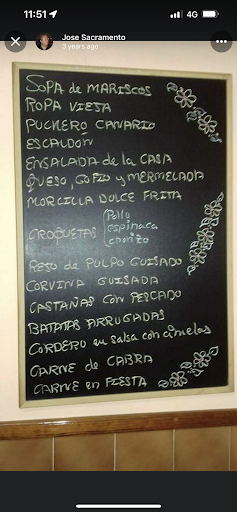 11:51
4G
Jose Sacramento
3 years ago
SOPA de MARISCOS
ROPA VIEJA
PUCHERO CANARIO
ESCALDÓN
ENSALADA de la CASA
QUESO, GOFIO y MERMELADA
MORCILLA DULCE FRITA
CROQUETAS
Pollo
espinaca
chorizo
RESO de PULPO GUISADO
CORVINA GUISADA
CASTAÑAS con PESCADO
BATATAS ARRUGADAS
CORDERO en salsa con ciruelas
CARNE de CABRA
CARNE en FIESTA